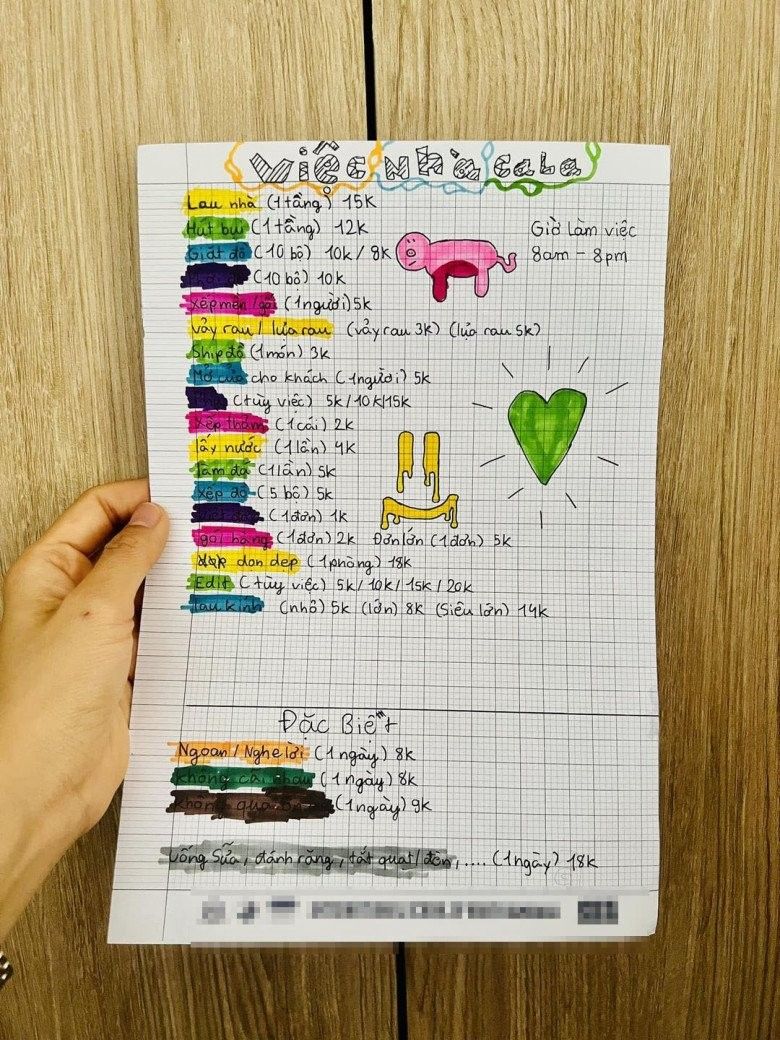 Việc nhà CaLa
Lau nhà (1 tầng) 15k
Hút bụi (1 tầng) 12k
Giờ làm việc
8am - 8pm
Giặt đồ (10 bộ) 10k / 8k
(10 bộ) 10k
xếp mền / gối (1 người) 5k
vảy rau / lựa rau (vảy rau 3k) (lựa rau 5k)
Ship đồ (1 món) 3k
Mở cửa cho khách (1 người) 5k
(tùy việc) 5k / 10k / 15k
xếp thảm (1 cái) 2k
lấy nước (1 lần) 4k
làm đá (1 lần) 5k
xếp đồ (5 bộ) 5k
(1 đơn) 1k
gói hàng (1 đơn) 2k Đơn lớn (1 đơn) 5k
dọn dẹp (1 phòng) 18k
Edit (tùy việc) 5k / 10k / 15k / 20k
lau kính (nhỏ) 5k (lớn) 8k (siêu lớn) 14k
Đặc Biệt
Ngoan / Nghe lời (1 ngày) 8k
không cãi nhau (1 ngày) 8k
không (1 ngày) 9k
uống sữa, đánh răng, tắt quạt / đèn, .... (1 ngày) 18k